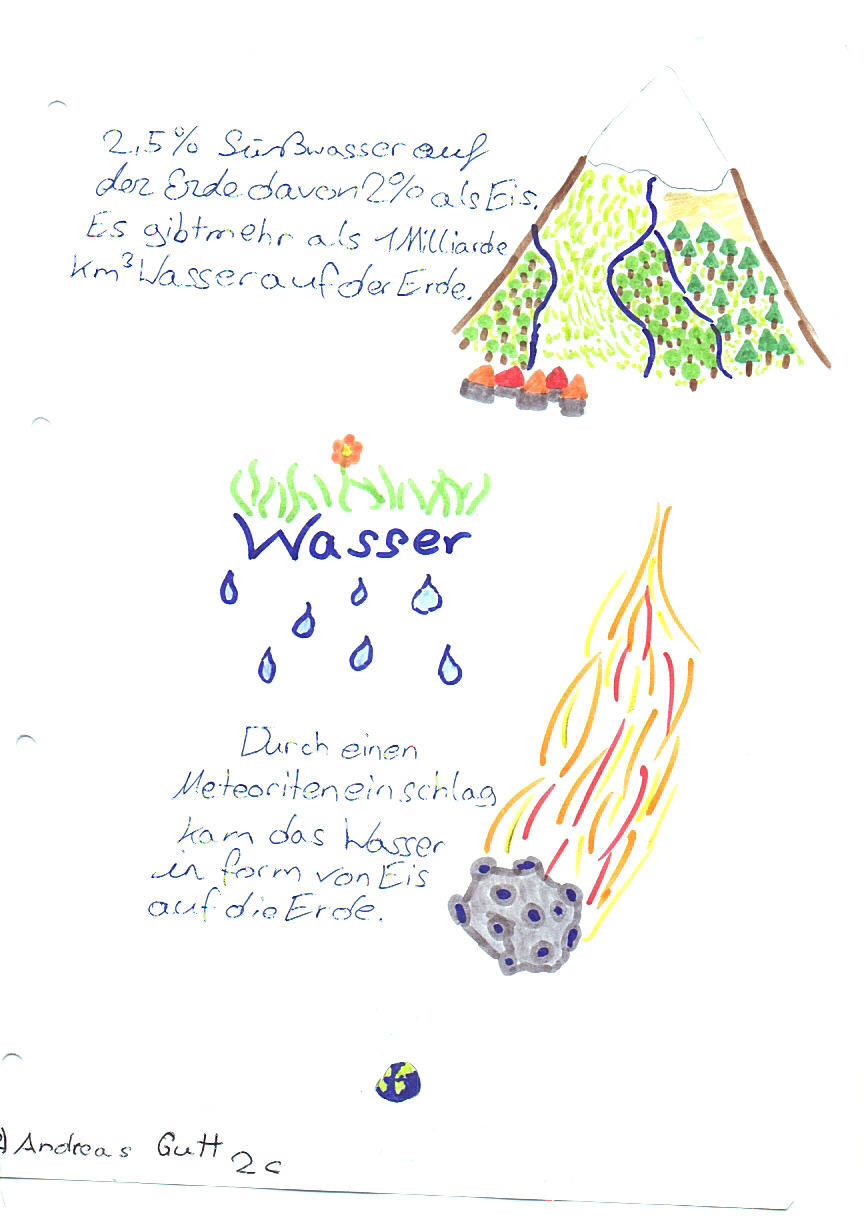 2,5% Süßwasser auf
der Erde davon 2% als Eis.
Es gibt mehr als 1 Milliarde
km³ Wasser auf der Erde.
Wasser
Durch einen
Meteoriteneinschlag
kam das Wasser
in form von Eis
auf die Erde.
Andreas Gutt
2c